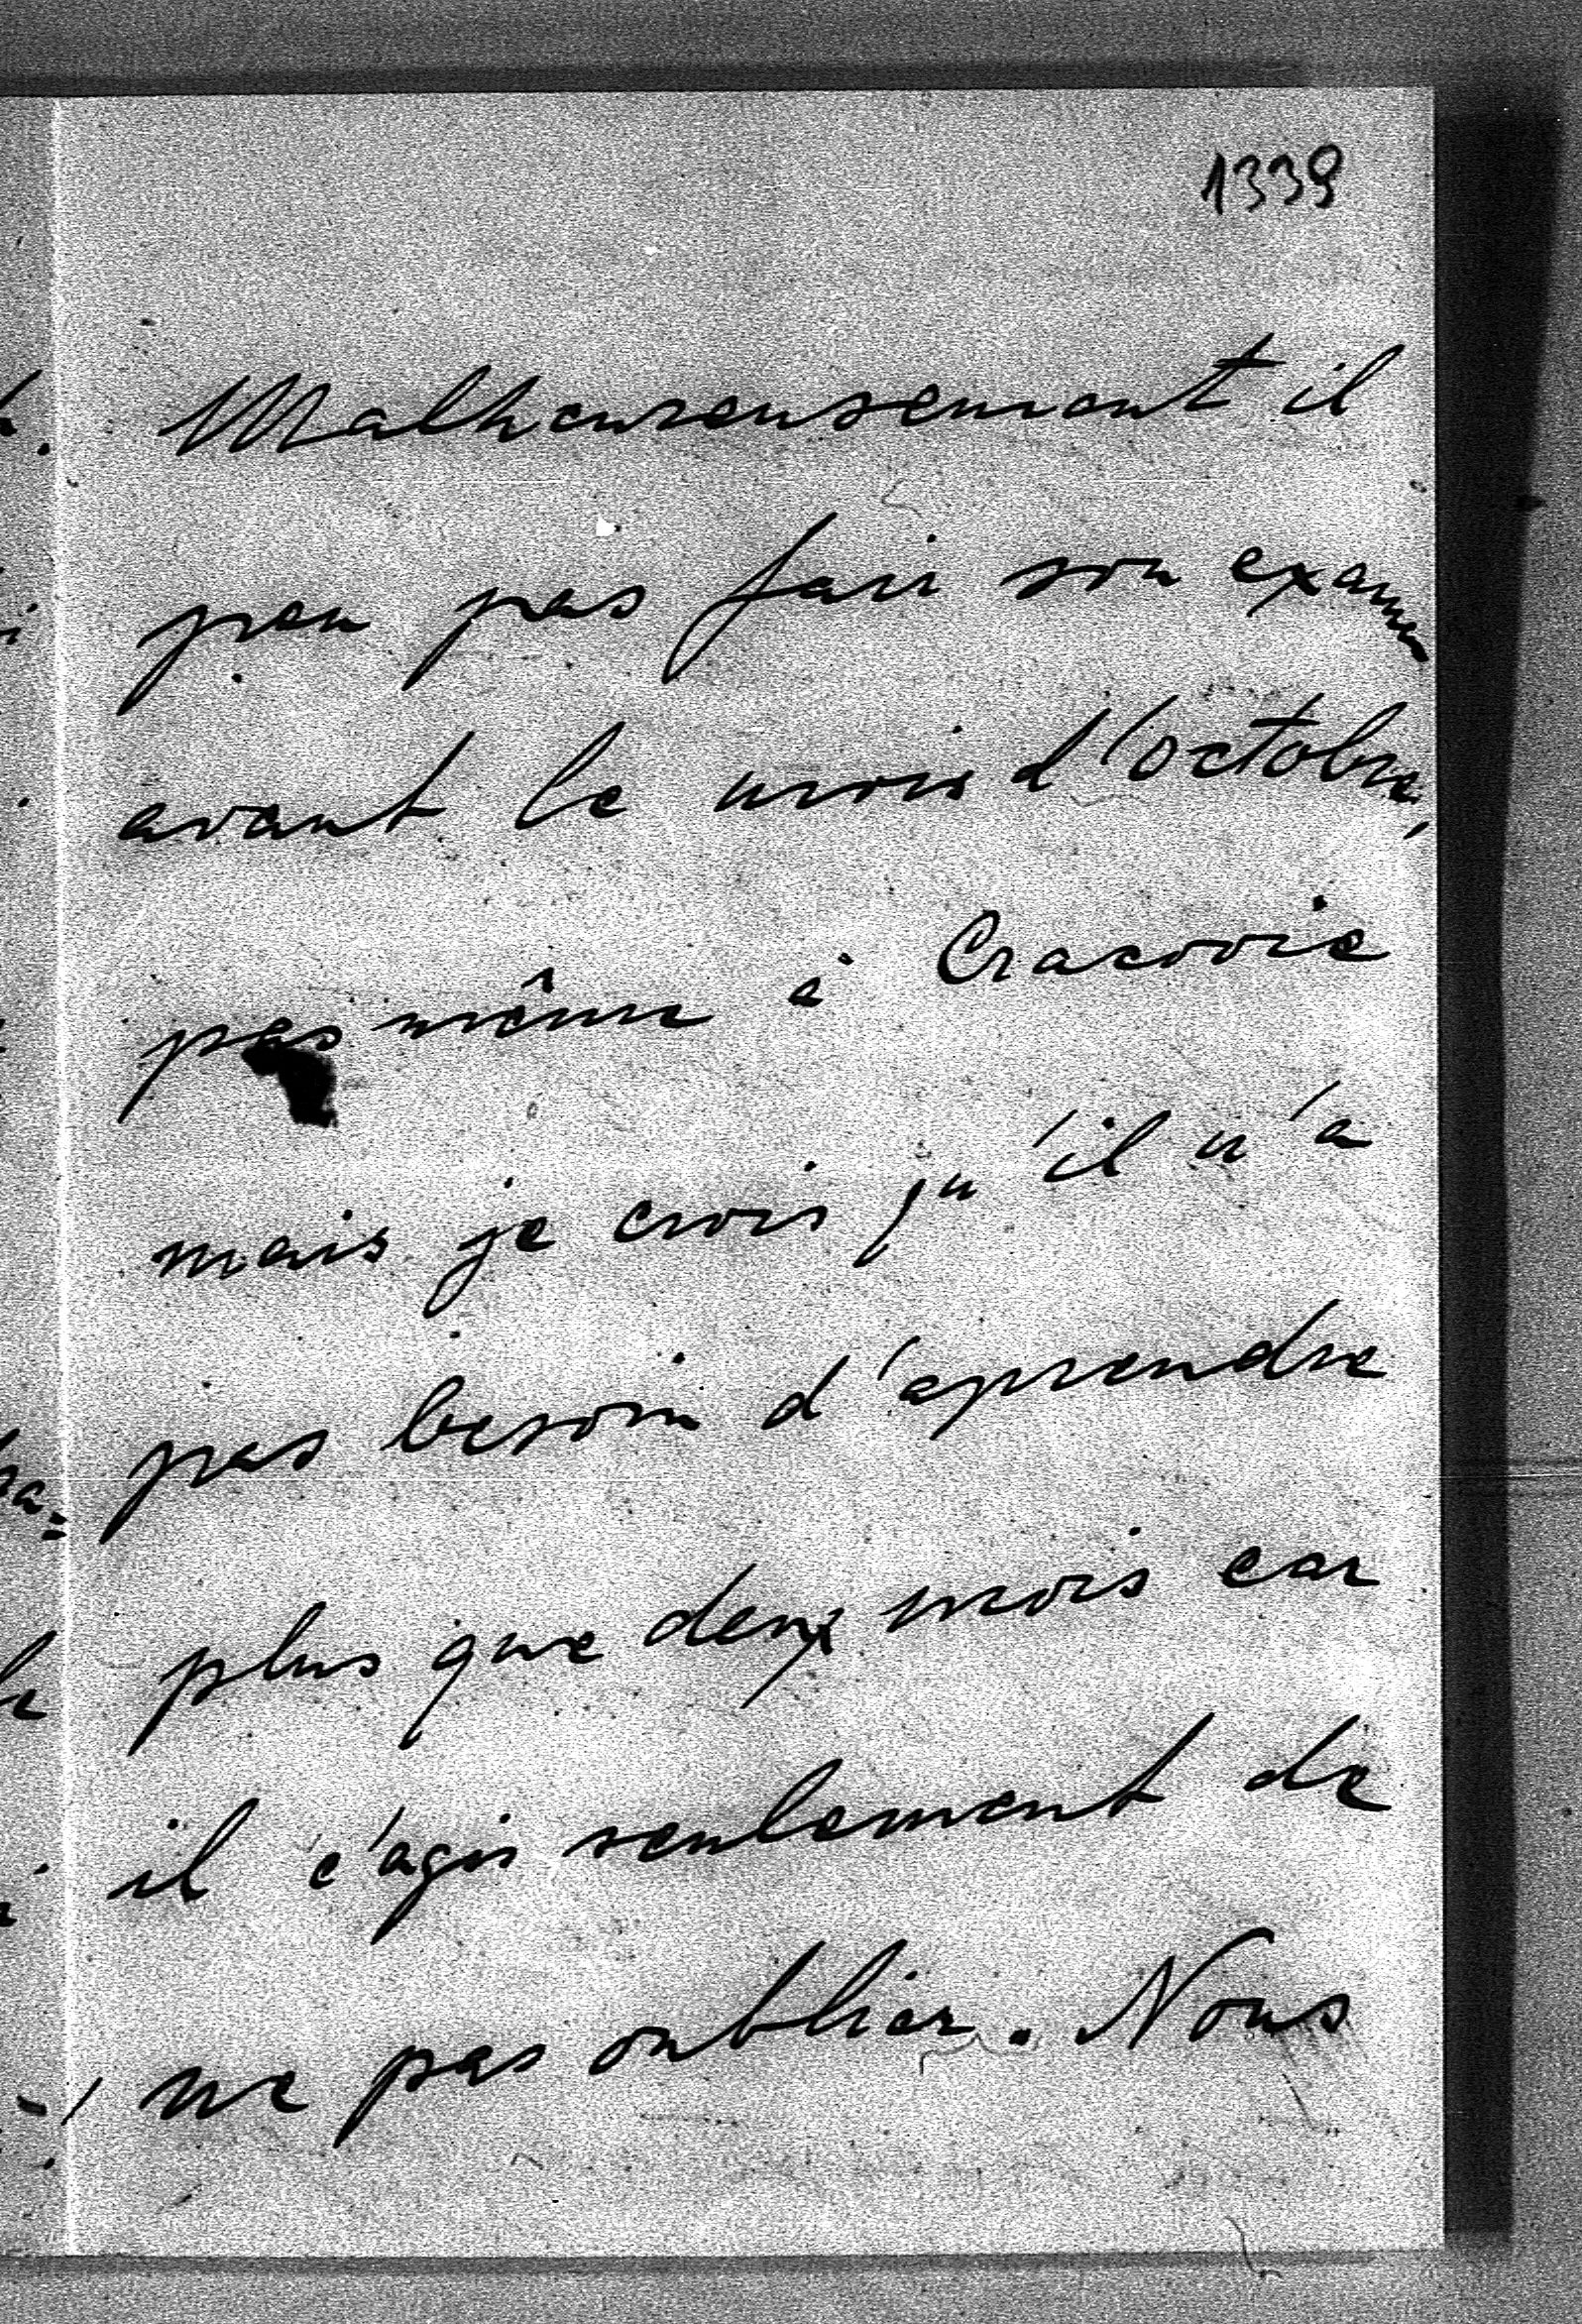 1339
Malheureusement il
peu pas fair son examen
avant le mois d'octobre,
pas même à Cracovie
mais je crois qu'il n'a
pas besoin d'aprendre
plus que deux mois car
il c'agis seulement de
ne pas oublier. Nous